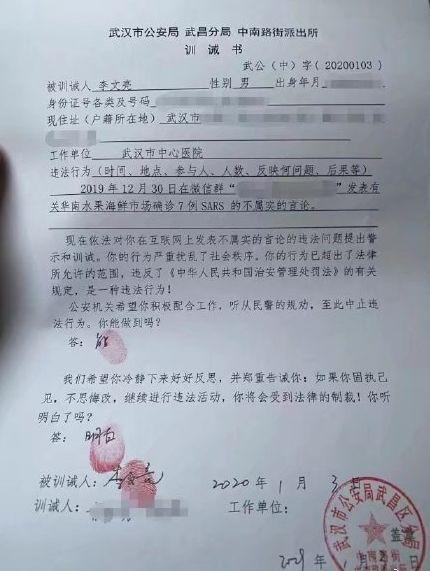 武汉市公安局 武昌分局 中南路街派出所
训 诫 书
武公(中)字(20200103)
被训诫人 李文亮 性别 男 出身年月
身份证号各类及号码
现住址(户籍所在地) 武汉市
工作单位 武汉市中心医院
违法行为(时间、地点、参与人、人数、反映何问题、后果等)
2019年12月30日在微信群“ ”发表有
关华南水果海鲜市场确诊7例SARS的不属实的言论。
现在依法对你在互联网上发表不属实的言论的违法问题提出警
示和训诫。你的行为严重扰乱了社会秩序。你的行为已超出了法律
所允许的范围,违反了《中华人民共和国治安管理处罚法》的有关
规定,是一种违法行为!
公安机关希望你积极配合工作,听从民警的规劝,至此中止违
法行为。你能做到吗?
答:能
我们希望你冷静下来好好反思,并郑重告诫你:如果你固执己
见,不思悔改,继续进行违法活动,你将会受到法律的制裁!你听
明白了吗?
答:明白
被训诫人:李文亮 2020年 1月 3日
训诫人: 工作单位:
武汉市公安局武昌区分局
盖章
中南路街
年 月 日